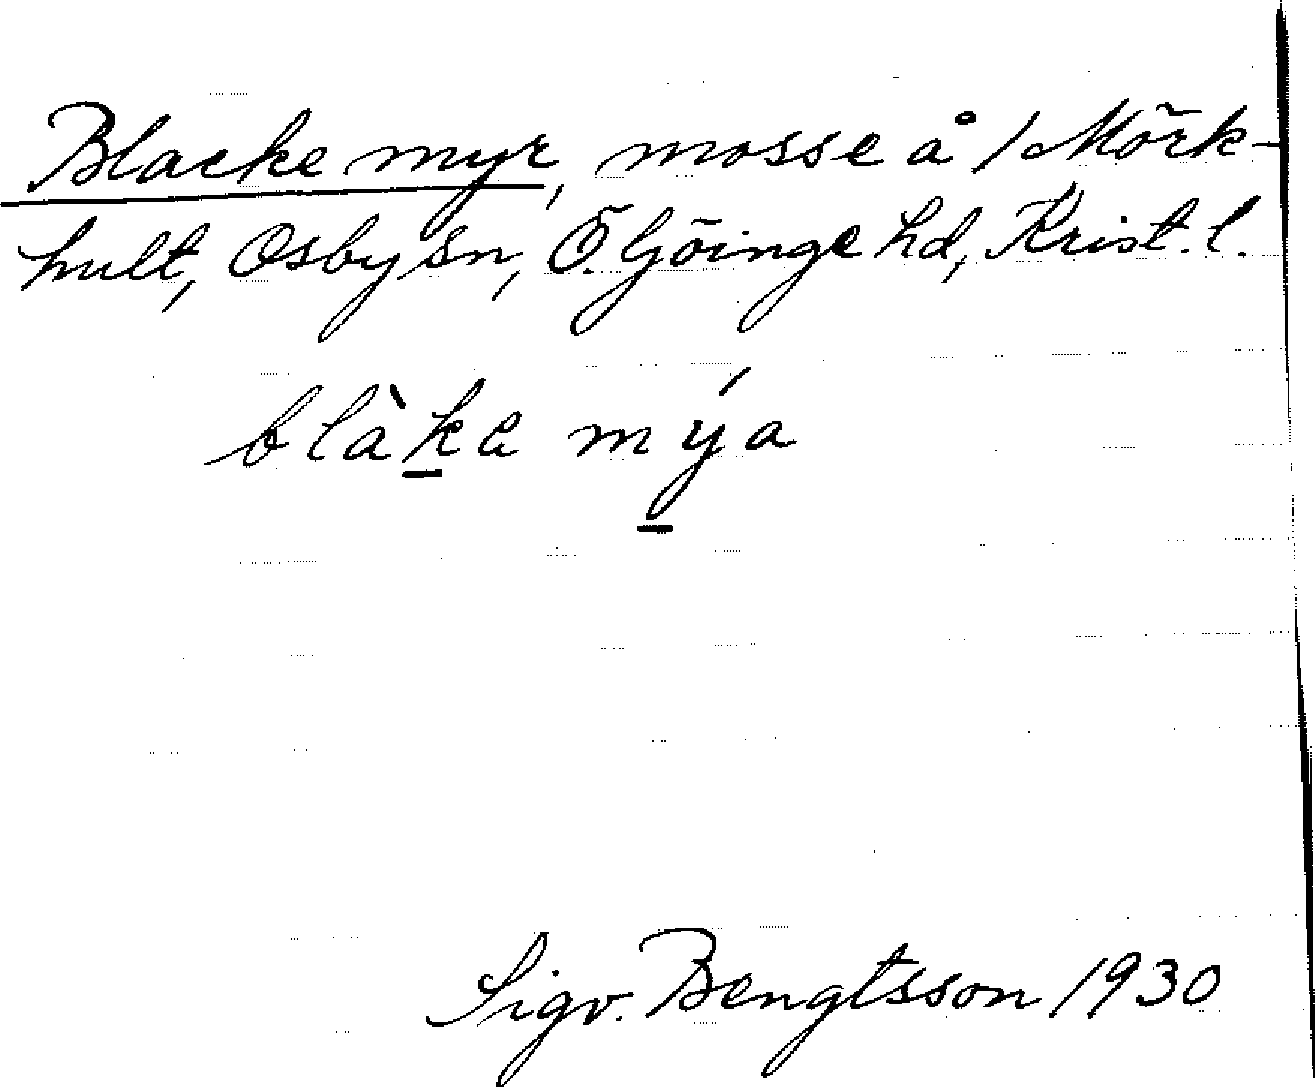 Blacke myr, mosse å 1 Mörk-
hult, Osby sn, Ö. Göinge hd, Krist. l.
blàke mýa
Sigv. Bengtsson 1930